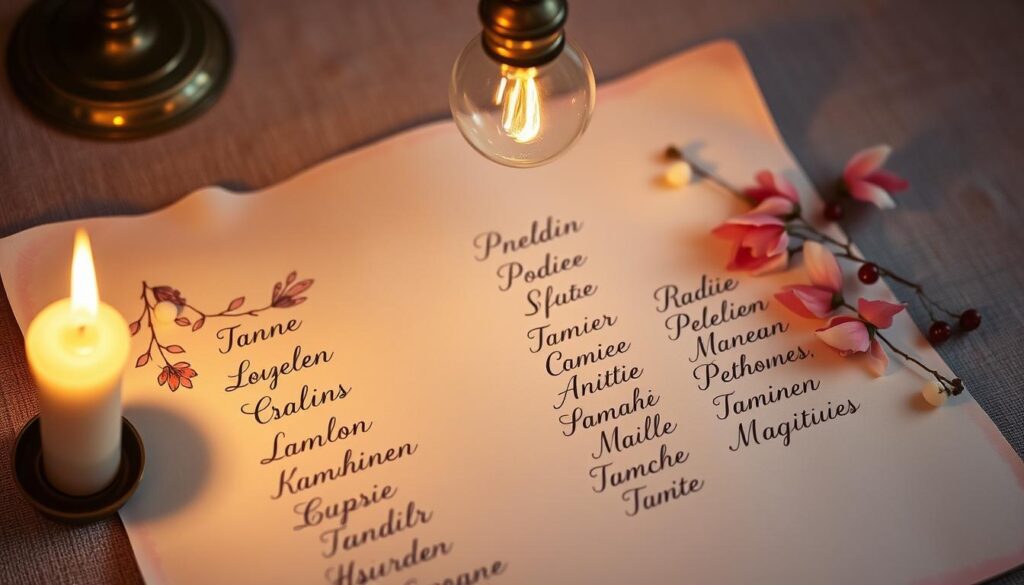 Tanne
Lovgelen
Cralins
Lamlon
Kamhinen
Cupsie
Tandilr
Hsurden
Pneldin
Podiee
Sfutie
Tamier
Camiee
Anittie
Samahè
Maille
Tamche
Tamite
Radiie
Pelelien
Manean
Pethomes.
Taminen
Magitiuies